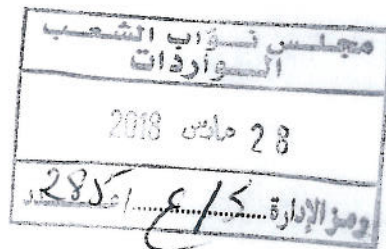 مجلس نواب الشعب
الواردات
28 مارس 2018
رمز الإدارة